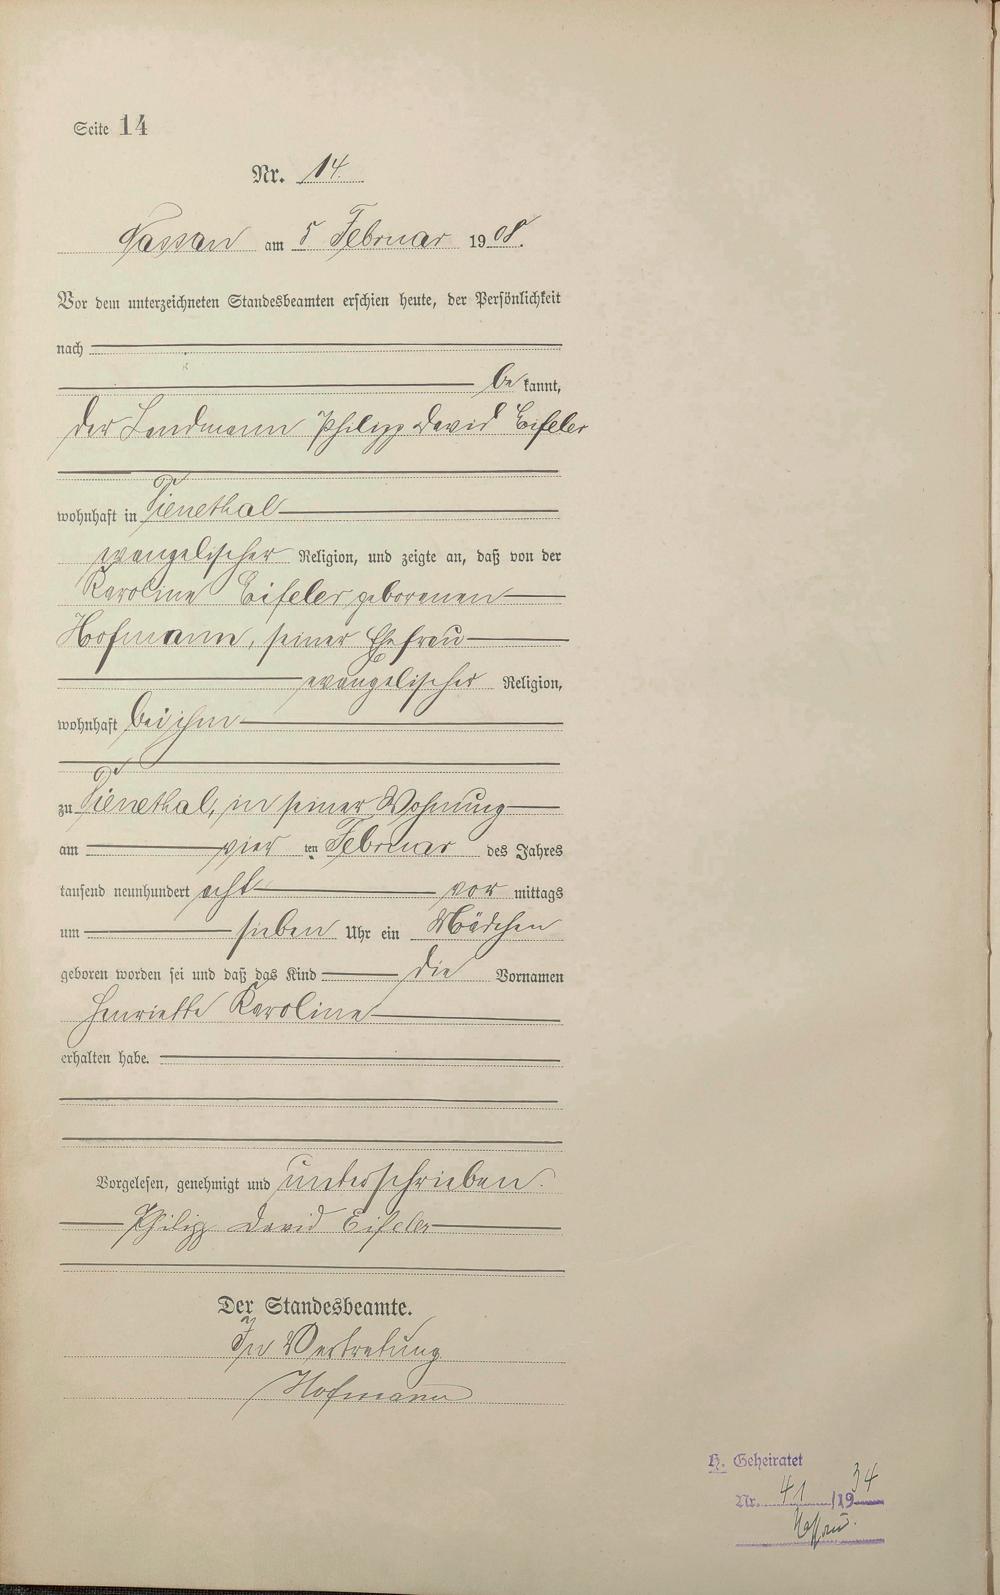 Seite 14
Nr. 14.
Nassau am 5 Februar 1908.
Vor dem unterzeichneten Standesbeamten erschien heute, der Persönlichkeit
nach
be kannt,
der Landmann Philipp David Eifeler
wohnhaft in Dienethal
evangelischer Religion, und zeigte an, daß von der
Karoline Eifeler geborenen
Hofmann, seiner Ehefrau
evangelischer Religion,
wohnhaft bei ihm
zu Dienethal, in seiner Wohnung
am vier ten Februar des Jahres
tausend neunhundert acht vor mittags
um sieben Uhr ein Mädchen
geboren worden sei und daß das Kind die Vornamen
Henriette Karoline
erhalten habe.
Vorgelesen, genehmigt und unterschrieben.
Philipp David Eifeler
Der Standesbeamte.
In Vertretung
Hofmann
H. Geheiratet
Nr. 41 /1934
Nassau.